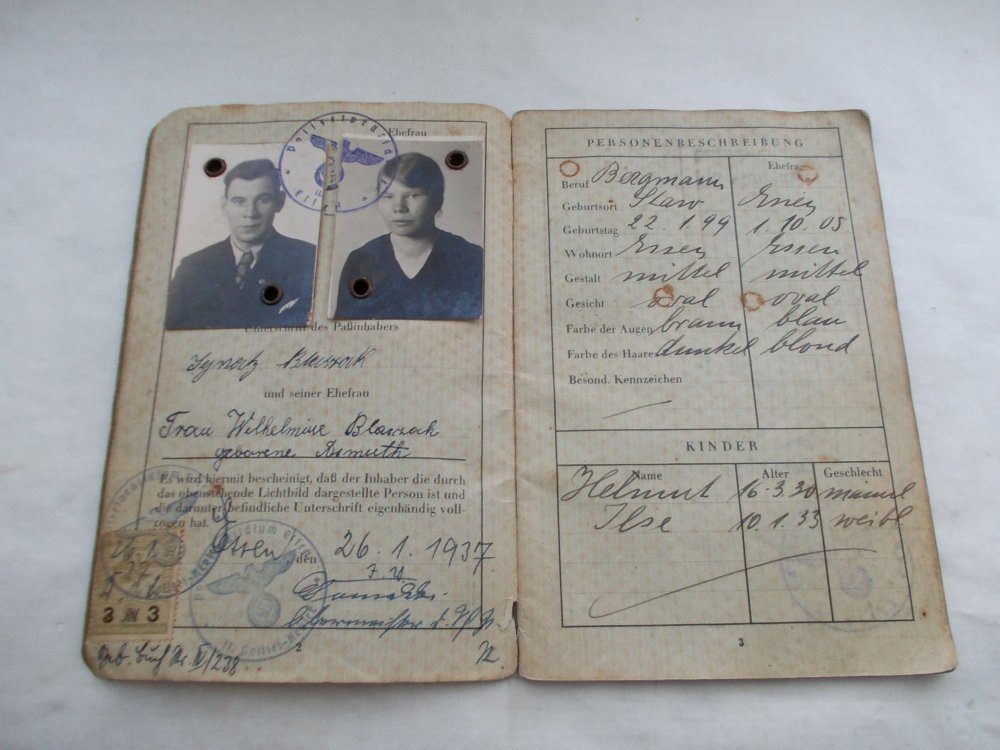 Ehefrau
Unterschrift des Paßinhabers
Ignatz Blaszak
und seiner Ehefrau
Frau Wilhelmine Blaszak
geborene Asmuth
Es wird hiermit bescheinigt, daß der Inhaber die durch
das obenstehende Lichtbild dargestellte Person ist und
die darunter befindliche Unterschrift eigenhändig voll-
zogen hat.
Essen, den 26.1.1937.
J. V.
3 RM 3
Geb. Buch Nr. IV/238
2
PERSONENBESCHREIBUNG
Ehefrau
Beruf Bergmann
Geburtsort Essen
Geburtstag 22.1.99 1.10.05
Wohnort Essen Essen
Gestalt mittel mittel
Gesicht oval oval
Farbe der Augen braun blau
Farbe des Haares dunkel blond
Besond. Kennzeichen —
KINDER
Name Alter Geschlecht
Helmut 16.3.30 männl
Ilse 10.1.33 weibl
3